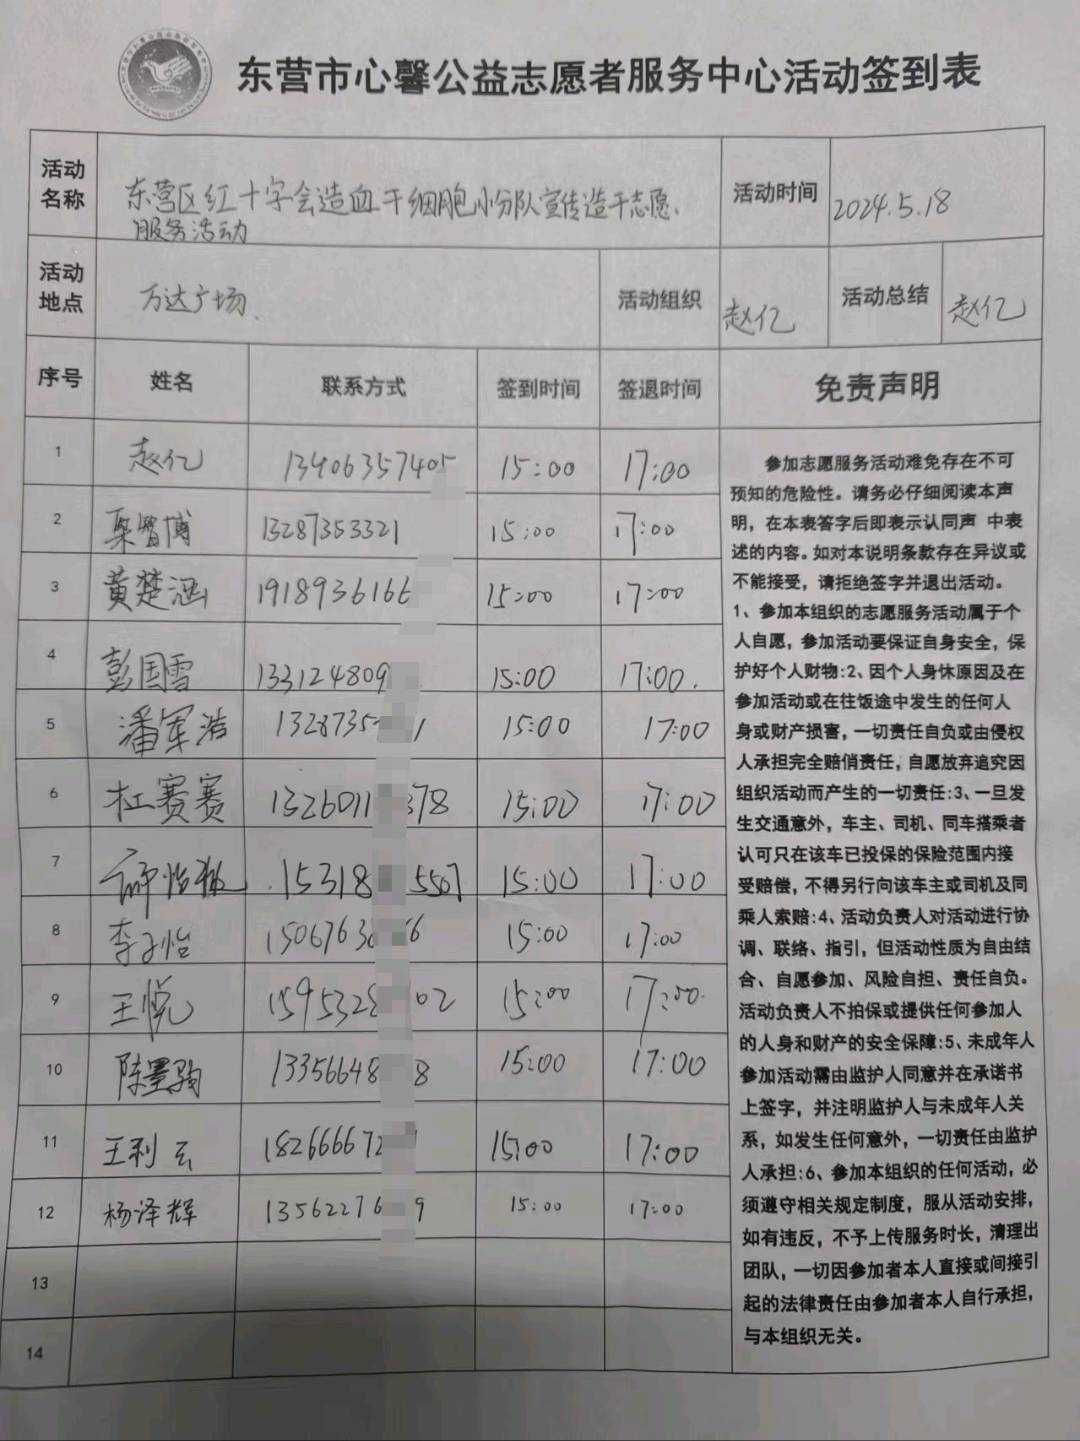 东营市心馨公益志愿者服务中心活动签到表
活动名称 东营区红十字会造血干细胞小分队宣传造干志愿服务活动 活动时间 2024.5.18
活动地点 万达广场 活动组织 赵亿 活动总结 赵亿
序号 姓名 联系方式 签到时间 签退时间 免责声明
1 赵亿 13406357405 15:00 17:00
2 智博 13287353321 15:00 17:00
3 黄楚涵 1918936166 15:00 17:00
4 彭国雪 133124809 15:00 17:00.
5 潘军浩 1328735 1 15:00 17:00
6 杜赛赛 1326011 378 15:00 17:00
7 怡 15318 5507 15:00 17:00
8 李子怡 15067630 66 15:00 17:00
9 王悦 1595328 02 15:00 17:00.
10 陈墨 13356648 8 15:00 17:00
11 王利云 182666672 15:00 17:00
12 杨泽辉 13562276 9 15:00 17:00
13
14
参加志愿服务活动难免存在不可
预知的危险性。请务必仔细阅读本声
明，在本表答字后即表示认同声 中表
述的内容。如对本说明条款存在异议或
不能接受，请拒绝签字并退出活动。
1、参加本组织的志愿服务活动属于个
人自愿，参加活动要保证自身安全，保
护好个人财物:2、因个人身休原因及在
参加活动或在往饭途中发生的任何人
身或财产损害，一切责任自负或由侵权
人承担完全赔俏责任，自愿放弃追究因
组织活动而产生的一切责任:3、一旦发
生交通意外，车主、司机、同车搭乘者
认可只在该车已投保的保险范围内接
受赔偿，不得另行向该车主或司机及同
乘人索赔:4、活动负责人对活动进行协
调、联络、指引，但活动性质为自由结
合、自愿参加、风险自担、责任自负。
活动负责人不拍保或提供任何参加人
的人身和财产的安全保障:5、未成年人
参加活动需由监护人同意并在承诺书
上签字，并注明监护人与未成年人关
系，如发生任何意外，一切责任由监护
人承担:6、参加本组织的任何活动，必
须遵守相关规定制度，服从活动安排，
如有违反，不予上传服务时长，清理出
团队，一切因参加者本人直接或间接引
起的法律责任由参加者本人自行承担，
与本组织无关。